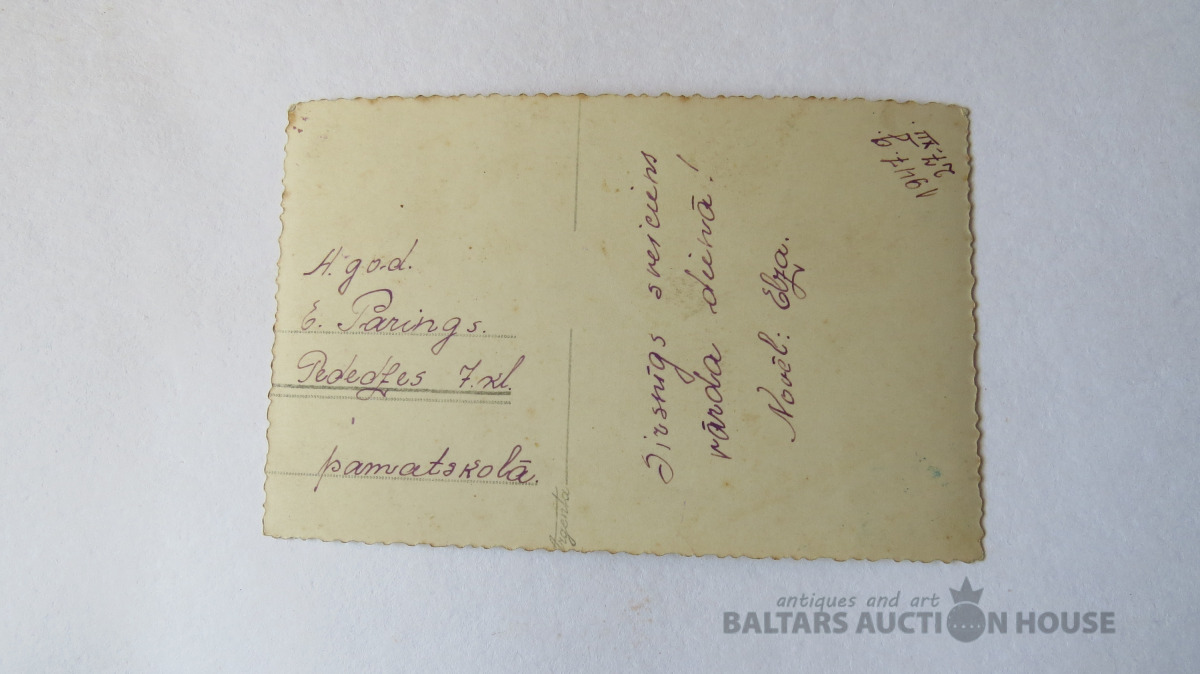 A. god.
E. Parings.
Pededzes 7.kl.
pamatskolā.
Argenta
Sirsnīgs sveiciens
vārda dienā!
Novēl: Elza.
1947.g.
27.XII.
antiques and art
BALTARS AUCTION HOUSE